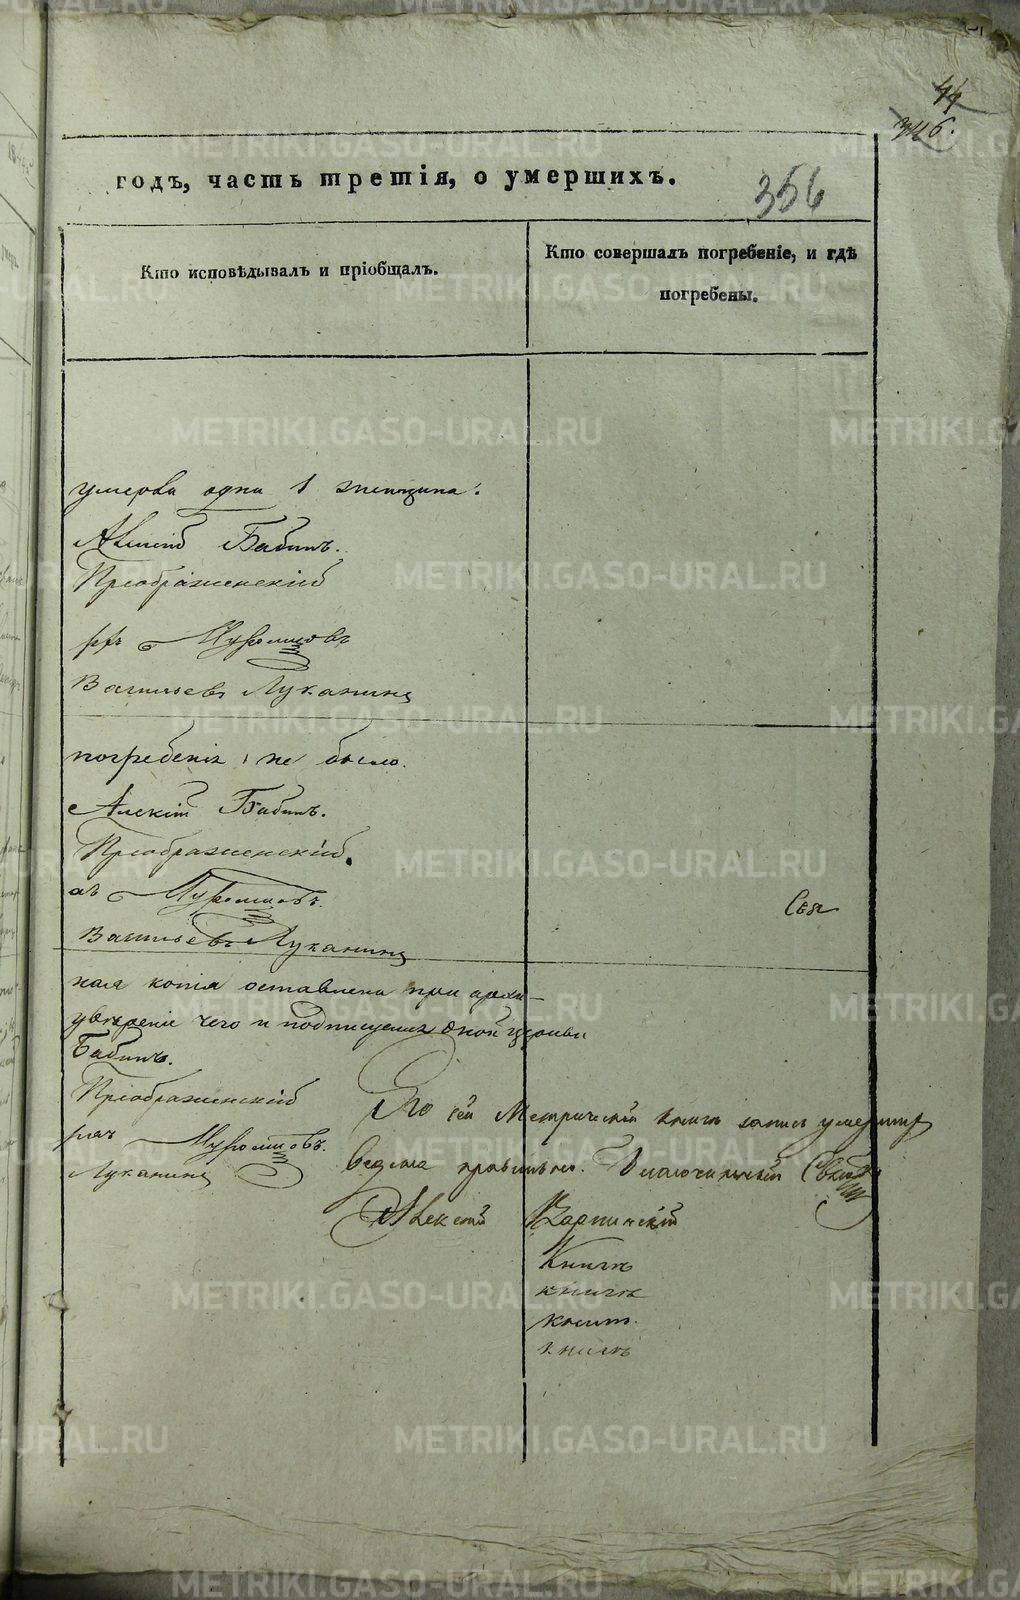 44
346.
годъ, часть третія, о умершихъ.
356
Кто исповѣдывалъ и пріобщалъ.
Кто совершалъ погребеніе, и гдѣ
погребены.
умерла одна 1 женщина.
Алексій Бабинъ.
Преображенскій
Муромцовъ
Васильевъ Луканинъ
погребенія не было.
Алексій Бабинъ.
Преображенскій.
Муромцовъ.
Васильевъ Луканинъ
ная копія оставлена при архи-
увѣреніе чего и подписуемся оной церкви
Бабинъ.
Преображенскій
Муромцовъ.
Луканинъ
По сей Метрической книгѣ запись умершихъ
ведена правильно. Благочинный
Алексій Карпинскій
Книгѣ
книгѣ
книгѣ
METRIKI.GASO-URAL.RU